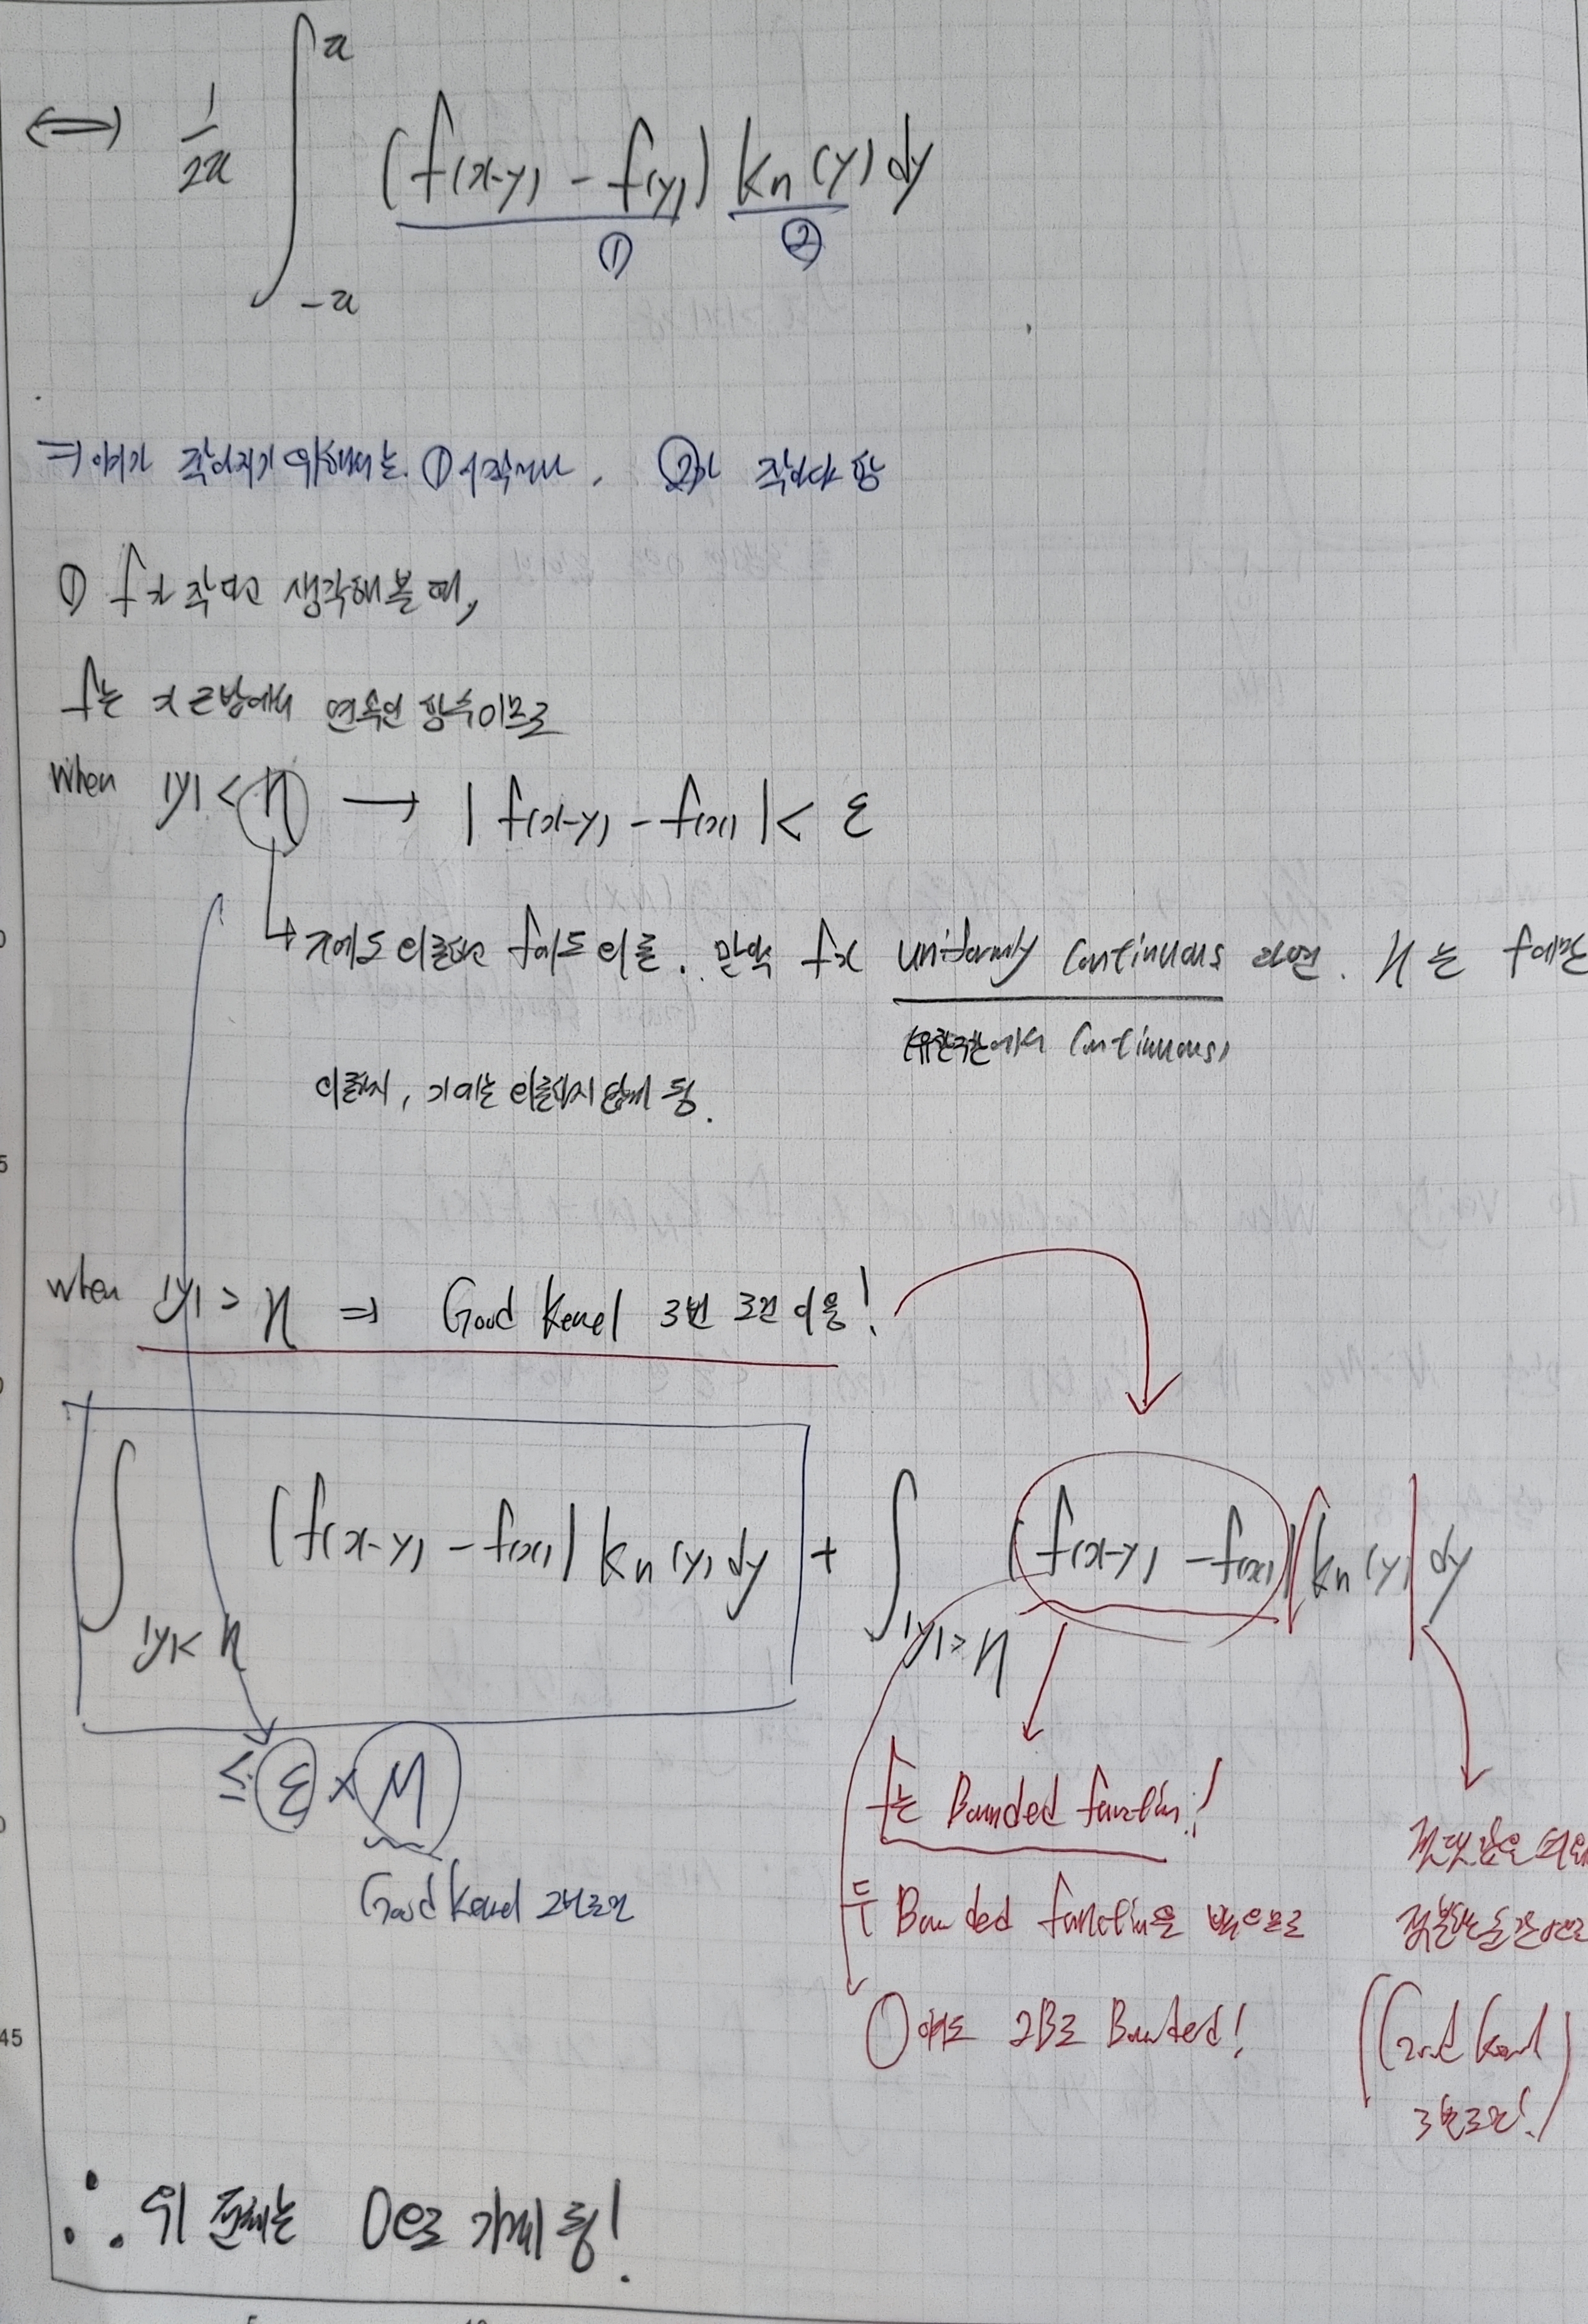 ⟺ 1/2π ∫_{-π}^{π} (f(x-y) - f(y)) Kn(y) dy
① ②
⇒ 여기가 작아지기 위해서는. ①이 작거나, ②가 작아야 함
① f가 작다고 생각해볼 때,
f는 x 근방에서 연속인 함수이므로
When |y| < η → | f(x-y) - f(x) | < ε
↳ x에도 의존하고 f에도 의존. 만약 f가 uniformly continuous 라면. η는 f에만
(유한구간에서 continuous)
의존하지, x에는 의존하지 않게 됨.
When |y| > η ⇒ Good Kernel 3번 조건 이용!
∫_{|y|<η} (f(x-y) - f(x)) Kn(y) dy + ∫_{|y|>η} (f(x-y) - f(x)) |Kn(y)| dy
≤ ε × M
Good Kernel 2번조건
f는 Bounded function!
두 Bounded function을 뺐으므로
여도 2B로 Bounded!
(Good Kernel
3번조건!)
∴ 위 전체는 0으로 가게 됨!
5
45
5
10